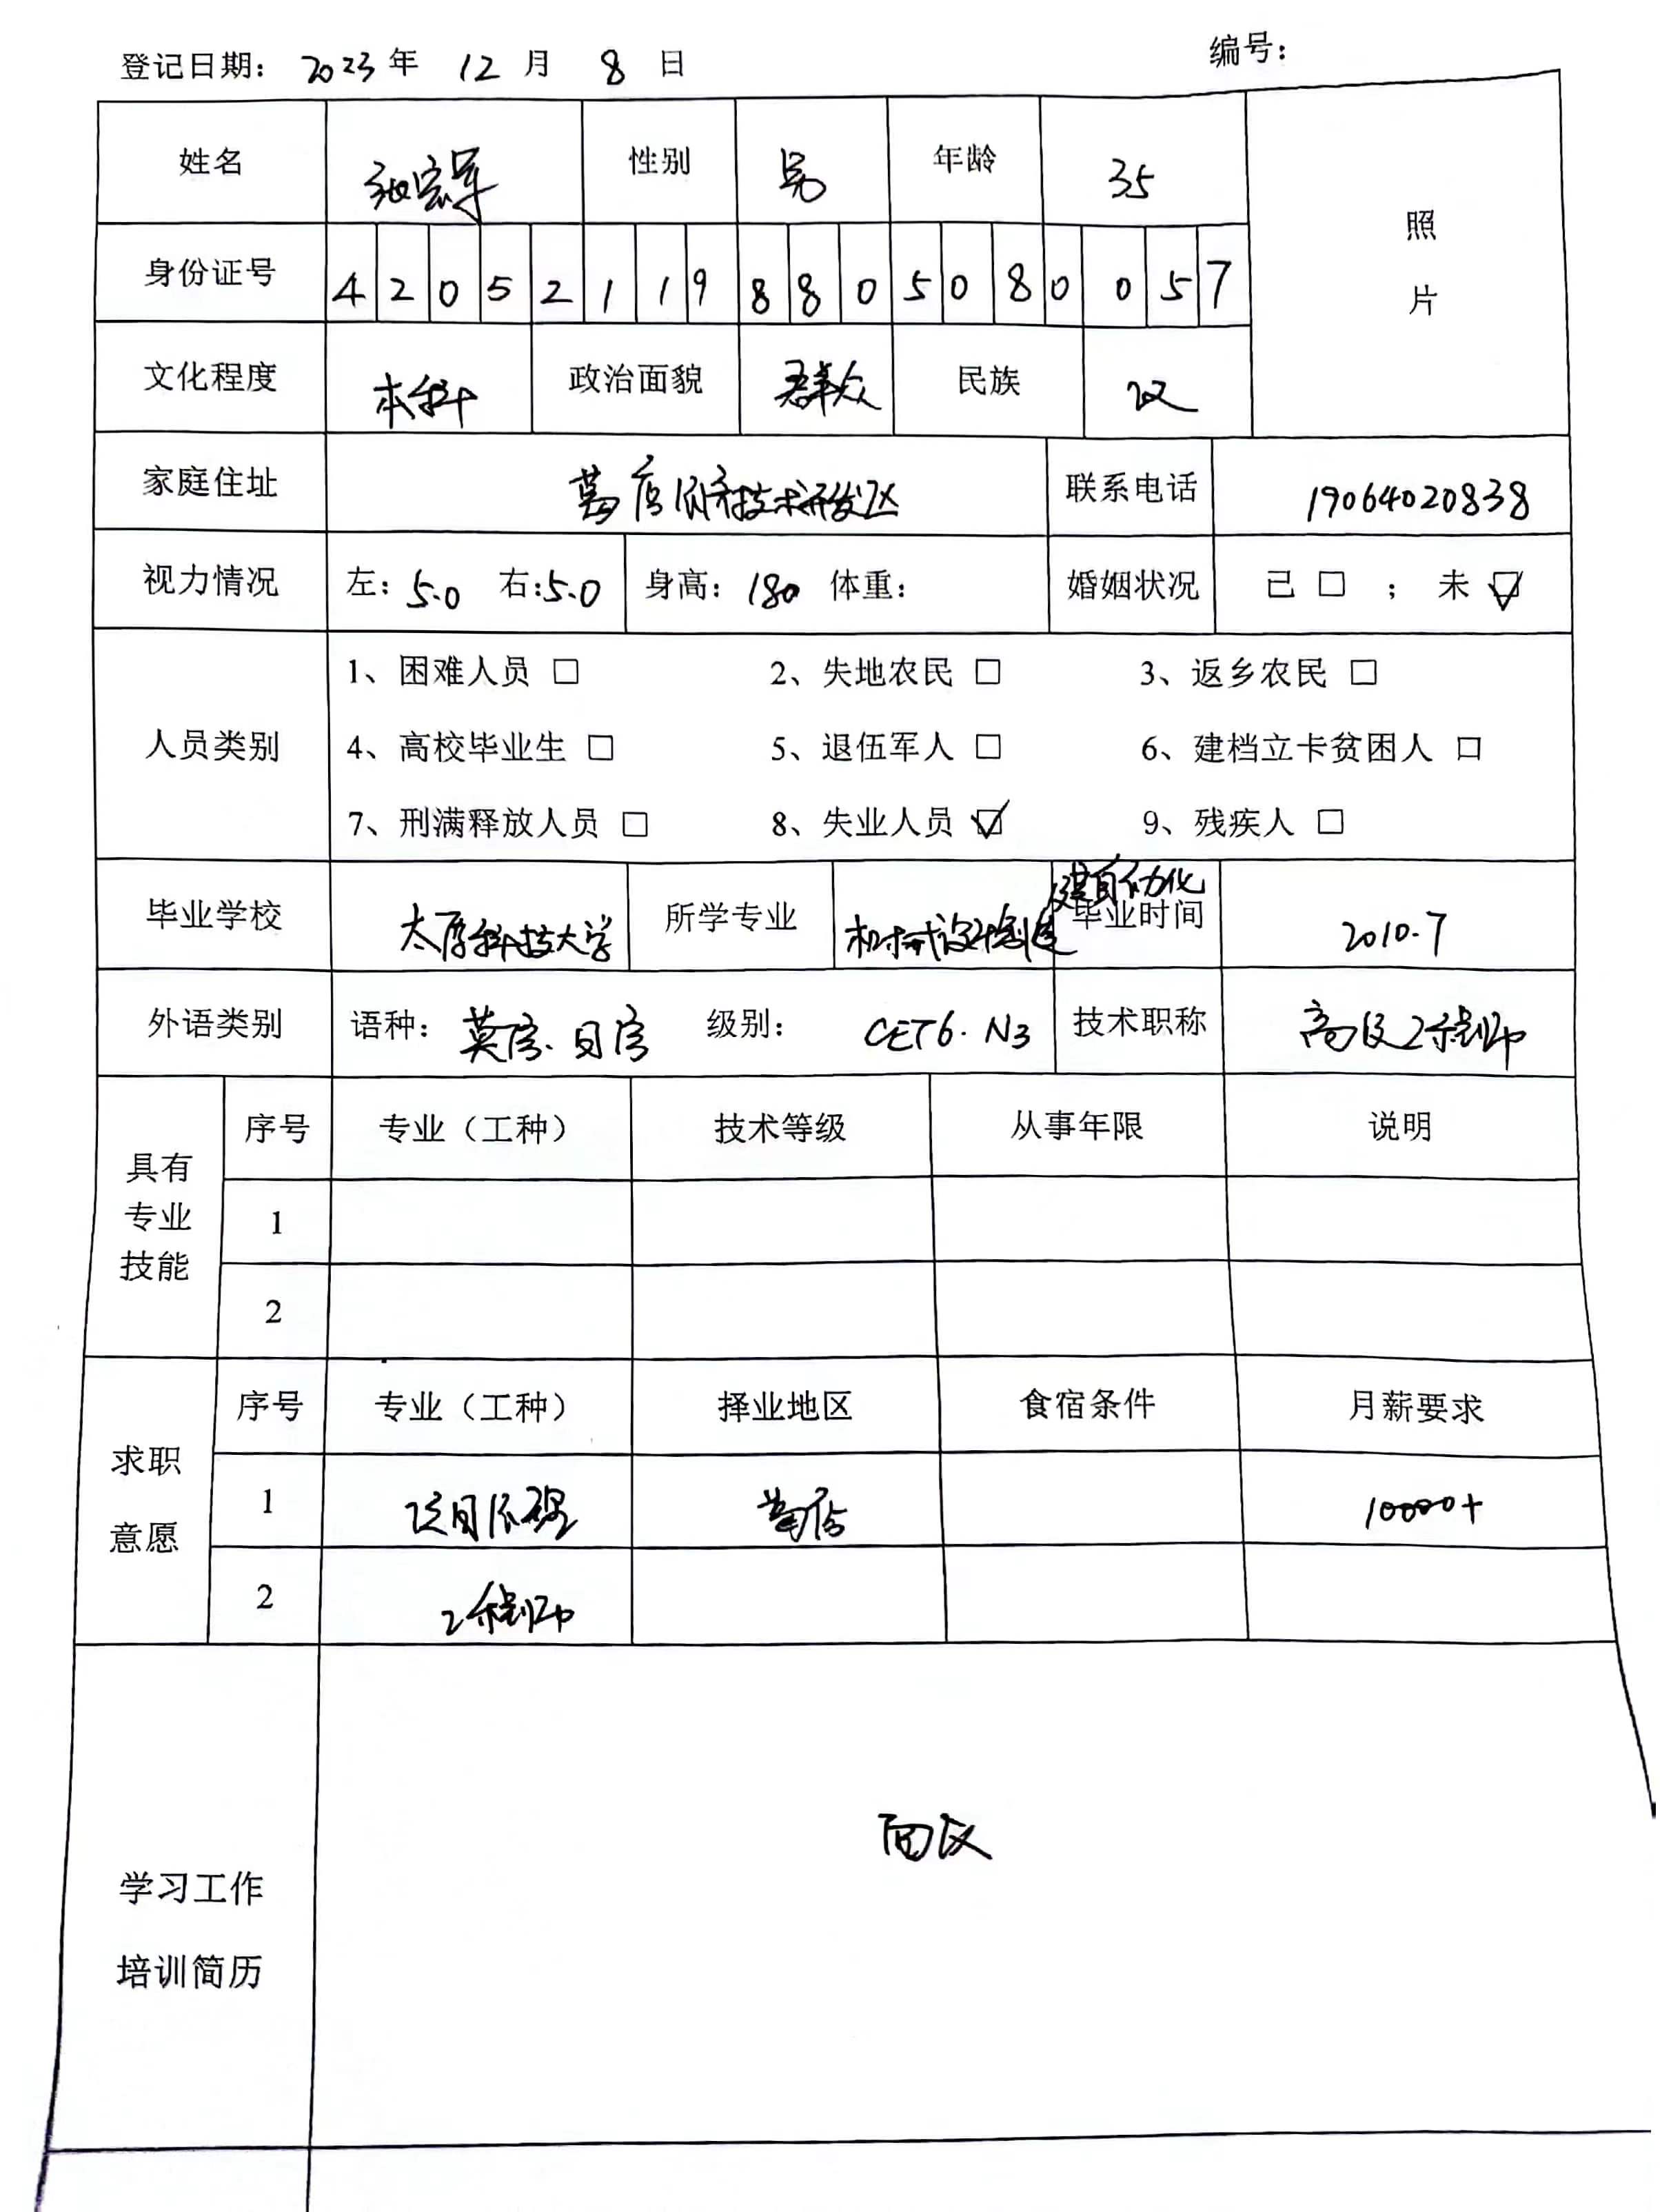 登记日期: 2023年 12月 8日 编号:
姓名 张宏军 性别 男 年龄 35
照片
身份证号 420521198805080057
文化程度 本科 政治面貌 群众 民族 汉
家庭住址 葛店经济技术开发区 联系电话 19064020838
视力情况 左: 5.0 右:5.0 身高: 180 体重: 婚姻状况 已 □ ; 未 ☑
人员类别
1、困难人员 □ 2、失地农民 □ 3、返乡农民 □
4、高校毕业生 □ 5、退伍军人 □ 6、建档立卡贫困人 □
7、刑满释放人员 □ 8、失业人员 ☑ 9、残疾人 □
毕业学校 太原科技大学 所学专业 机械设计制造及其自动化 毕业时间 2010.7
外语类别 语种: 英语、日语 级别: CET6. N3 技术职称 高级工程师
具有专业技能
序号 专业(工种) 技术等级 从事年限 说明
1
2
求职意愿
序号 专业(工种) 择业地区 食宿条件 月薪要求
1 项目经理 葛店 10000+
2 工程师
学习工作培训简历
面议